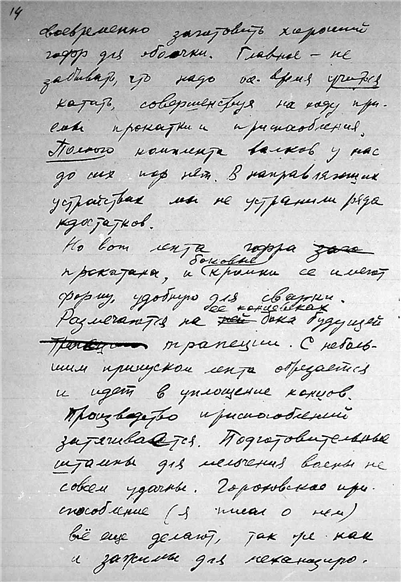 14
своевременно заготовить хороший
гофр для оболочки. Главное – не
забывать, что надо все время учиться
катать, совершенствуя на ходу при-
емы прокатки и приспособления.
Полного комплекта валков у нас
до сих пор нет. В направляющих
устройствах мы не устранили ряда
недостатков.
Но вот лента гофра
прокатана, и боковые кромки ее имеют
форму, удобную для сварки.
Размечаются на ее концевиках бока будущей
трапеции. С неболь-
шим припуском лента обрезается
и идет в уплощение концов.
Производство приспособлений
затягивается. Подготовительные
штампы для мельчения волны не
совсем удачны. Гороховское при-
способление (я писал о нем)
всё еще делают, так же как
и зажимы для механизиро-